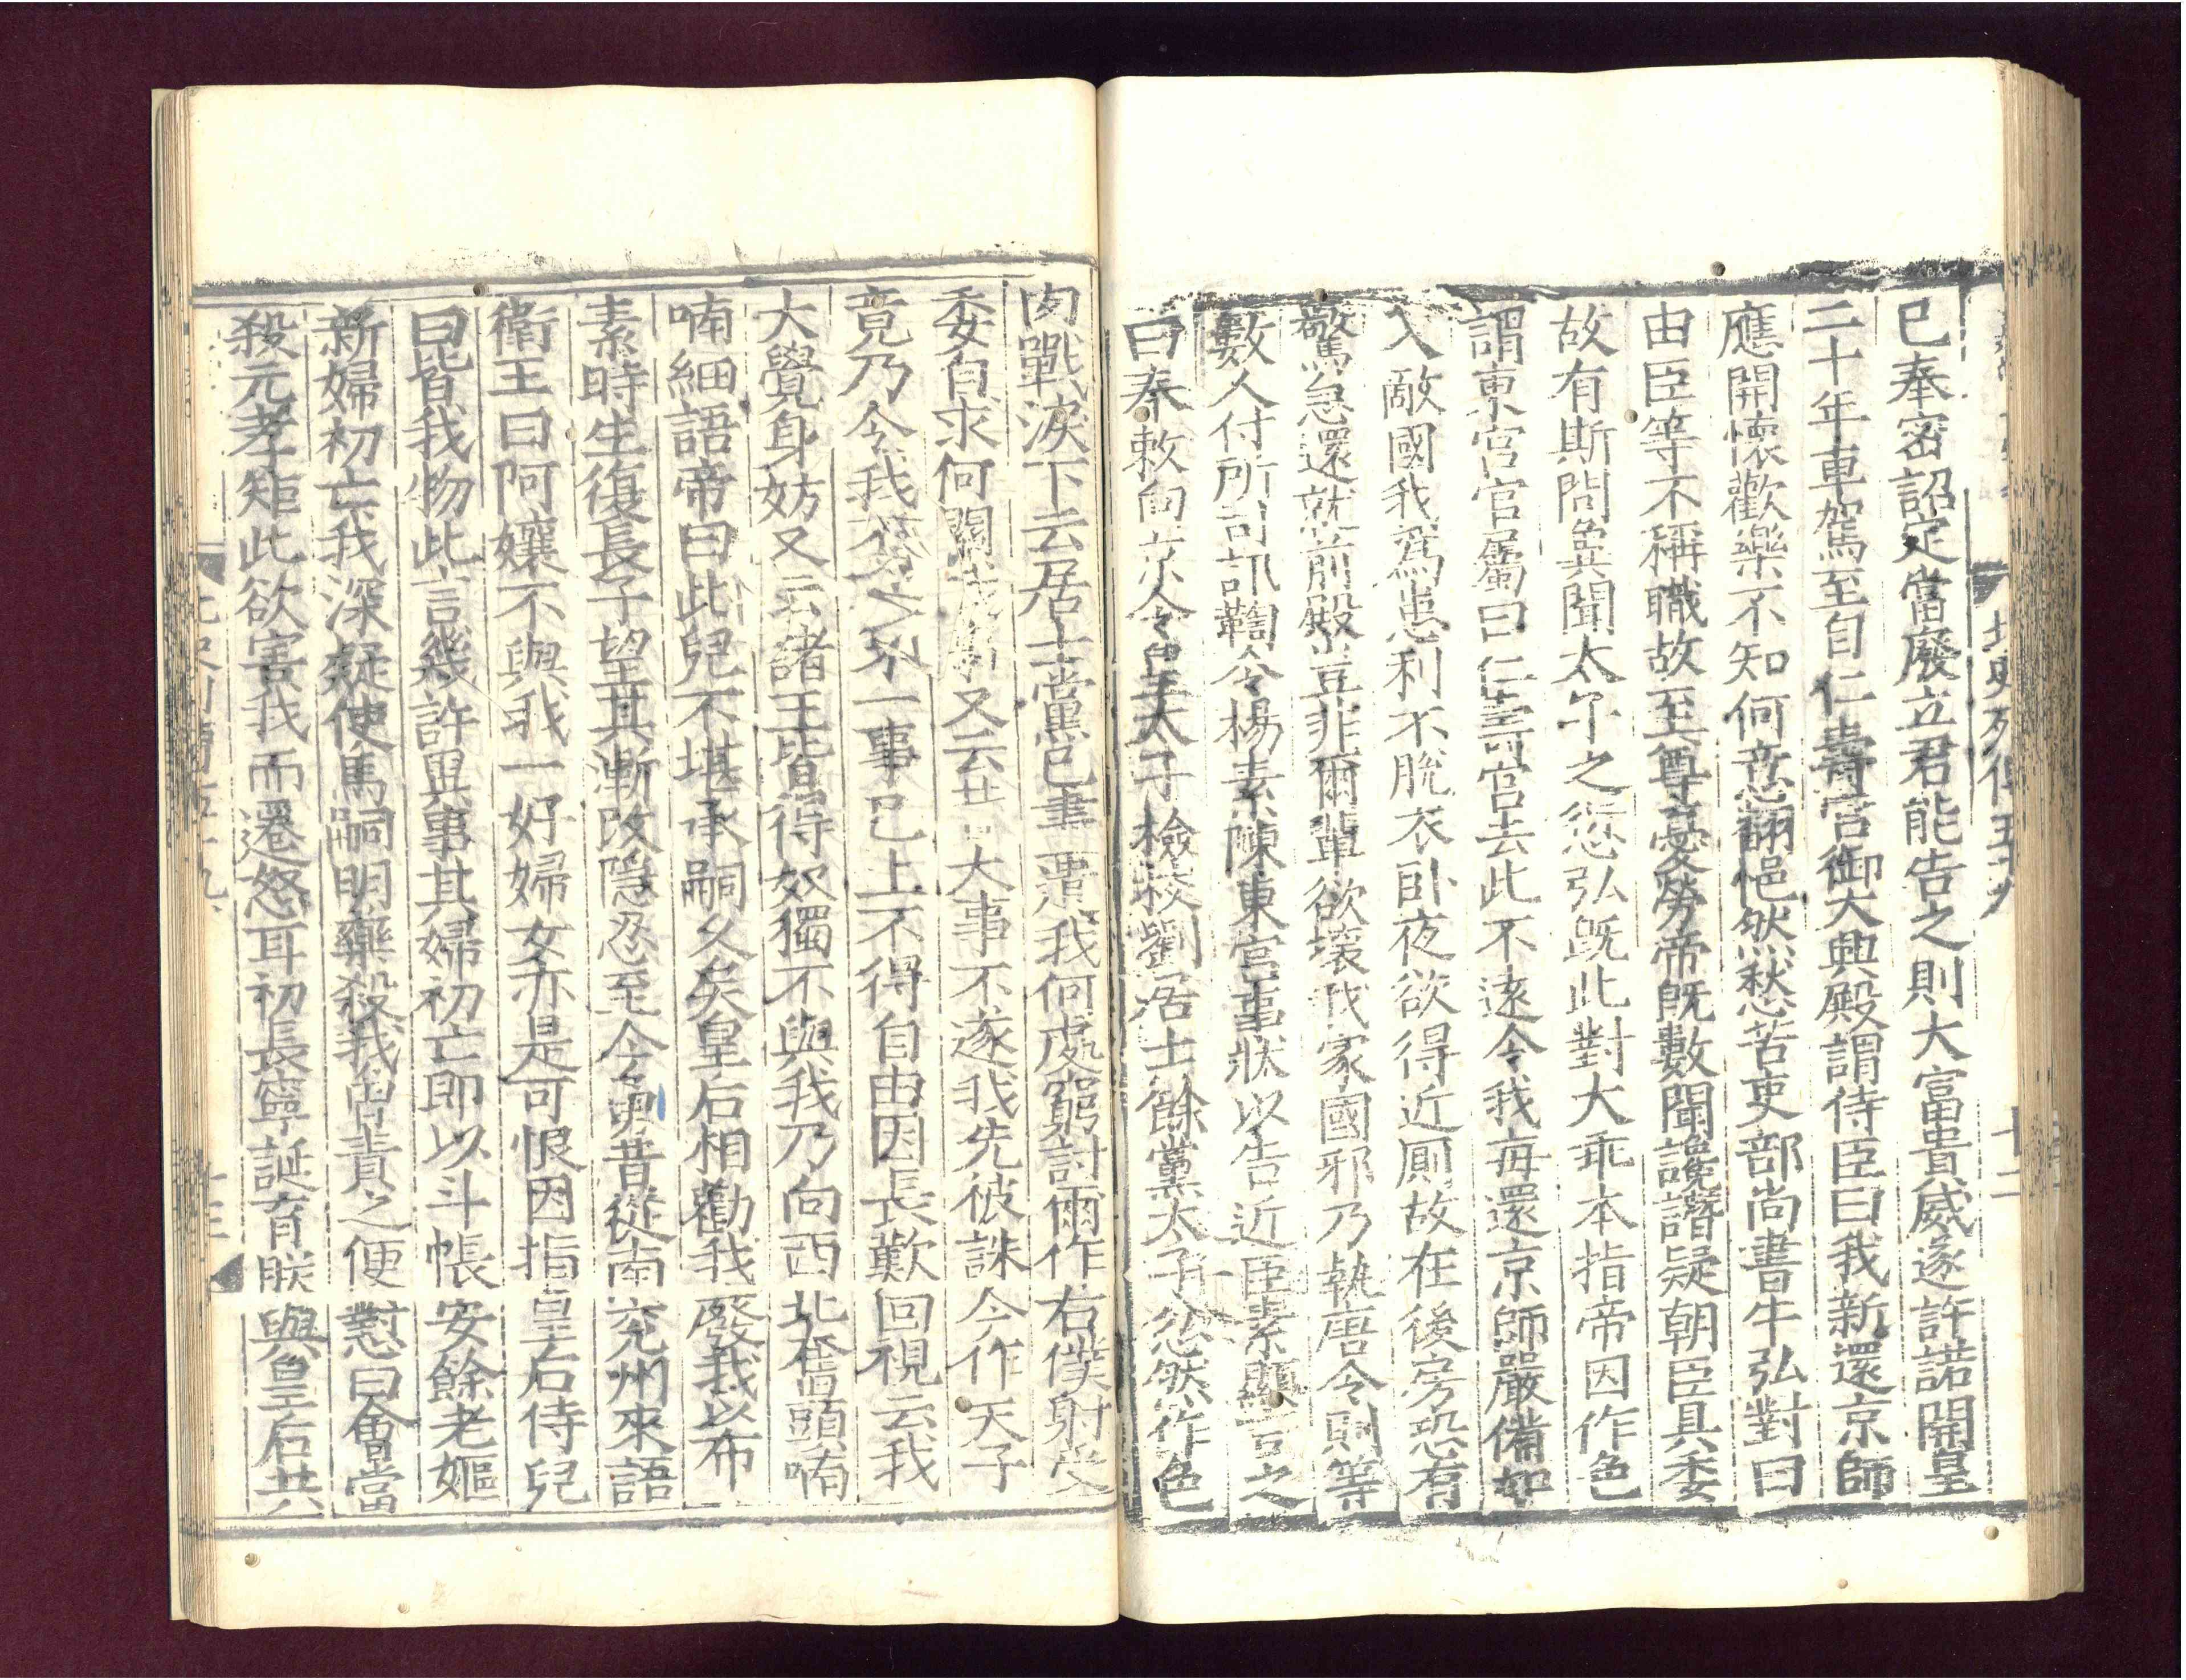 北史列傳五十九
十二
已奉密詔定當廢立君能告之則大富貴威遂許諾開皇
二十年車駕至自仁壽宮御大興殿謂侍臣曰我新還京師
應開懷歡樂不知何意翻悒然愁苦吏部尚書牛弘對曰
由臣等不稱職故至尊憂勞帝旣數聞讒譖疑朝臣具委
故有斯問兾聞太子之愆弘旣此對大乖本指帝因作色
謂東宮官屬曰仁壽宮去此不遠令我每還京師嚴備如
入敵國我爲患利不脫衣卧夜欲得近厠故在後房恐有
驚急還就前殿豈非爾輩欲壞我家國邪乃執唐令則等
數人付所司訊鞫令楊素陳東宮事狀以告近臣素顯言之
曰奉敕向京令皇太子檢校劉居士餘黨太子忿然作色
肉戰淚下云居士黨已盡 我何處窮討爾作右僕射受
委自求何關我事又云 大事不遂我先被誅今作天子
竟乃令我不如 一事已上不得自由因長歎回視云我
大覺身妨又云諸王皆得奴獨不與我乃向西北奮頭喃
喃細語帝曰此兒不堪承嗣久矣皇后相勸我廢我以布
素時生復長子望其漸改隱忍至今勇昔從南兖州來語
衞王曰阿孃不與我一好婦女亦是可恨因指皇后侍兒
曰皆我物此言幾許異事其婦初亡即以斗帳安餘老嫗
新婦初亡我深疑使馬嗣明藥殺我曾責之便懟曰會當
殺元孝矩此欲害我而遷怒耳初長寧誕育朕與皇后共
北史列傳五十九
十三